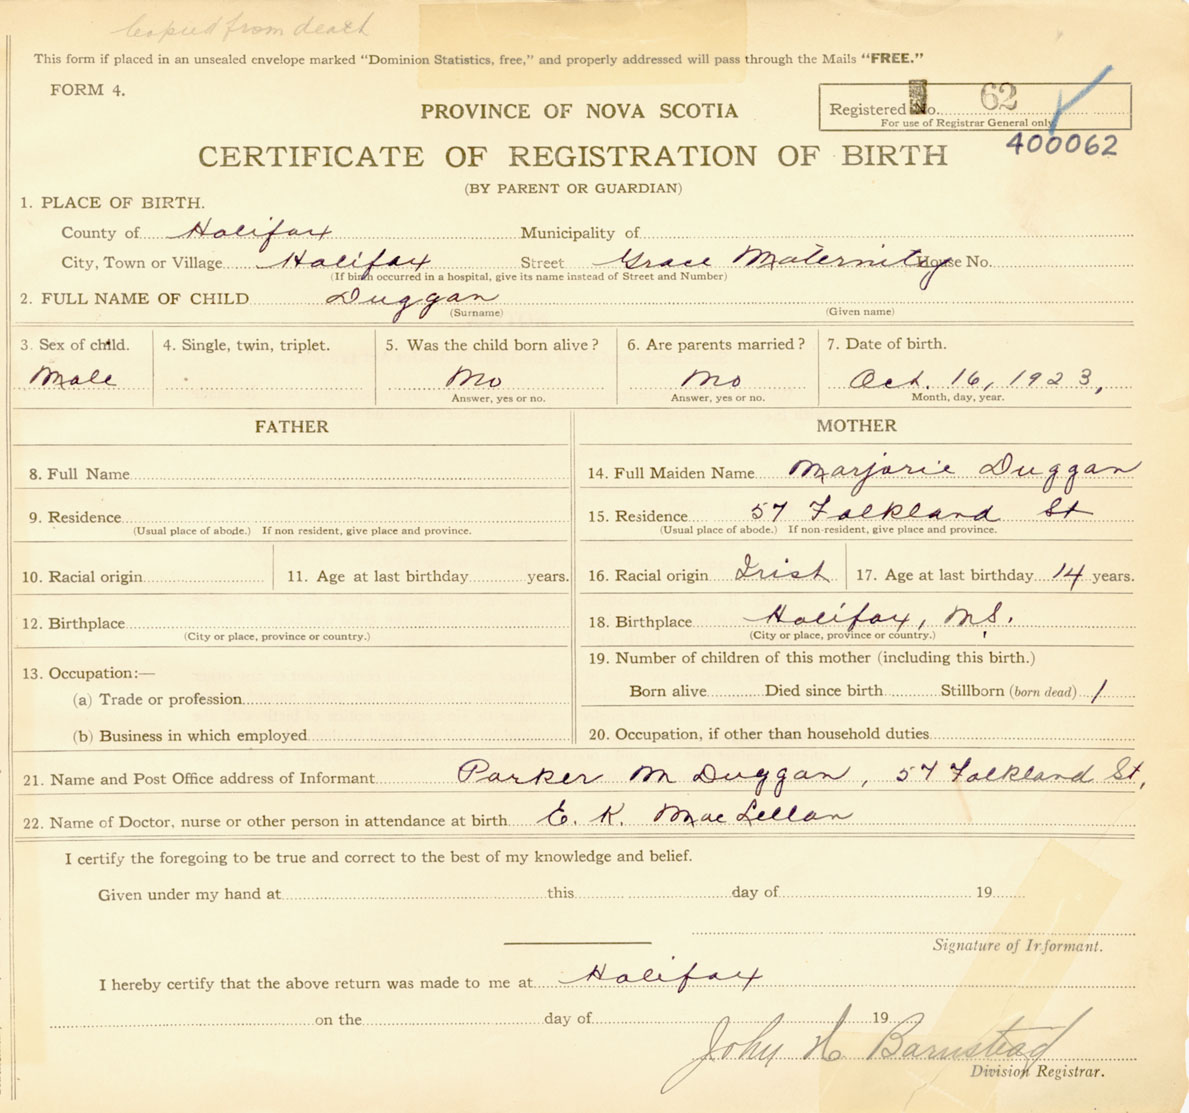 Copied from death
This form if placed in an unsealed envelope marked "Dominion Statistics, free," and properly addressed will pass through the Mails "FREE."
FORM 4.
PROVINCE OF NOVA SCOTIA
Registered No. 62
For use of Registrar General only
400062
CERTIFICATE OF REGISTRATION OF BIRTH
(BY PARENT OR GUARDIAN)
1. PLACE OF BIRTH.
County of Halifax Municipality of
City, Town or Village Halifax Street Grace Maternity House No.
(If birth occurred in a hospital, give its name instead of Street and Number)
2. FULL NAME OF CHILD Duggan
(Surname) (Given name)
3. Sex of child. 4. Single, twin, triplet. 5. Was the child born alive? 6. Are parents married? 7. Date of birth.
Male No No Oct. 16, 1923,
Answer, yes or no. Answer, yes or no. Month, day, year.
FATHER MOTHER
8. Full Name 14. Full Maiden Name Marjorie Duggan
9. Residence 15. Residence 57 Falkland St
(Usual place of abode.) If non resident, give place and province. (Usual place of abode.) If non-resident, give place and province.
10. Racial origin 11. Age at last birthday years. 16. Racial origin Irish 17. Age at last birthday 14 years.
12. Birthplace 18. Birthplace Halifax, N.S.
(City or place, province or country.) (City or place, province or country.)
13. Occupation:— 19. Number of children of this mother (including this birth.)
(a) Trade or profession Born alive Died since birth Stillborn (born dead) 1
(b) Business in which employed 20. Occupation, if other than household duties
21. Name and Post Office address of Informant Parker M Duggan, 57 Falkland St,
22. Name of Doctor, nurse or other person in attendance at birth E. K. MacLellan
I certify the foregoing to be true and correct to the best of my knowledge and belief.
Given under my hand at this day of 19
Signature of Informant.
I hereby certify that the above return was made to me at Halifax
on the day of 19
John H Barnstead
Division Registrar.